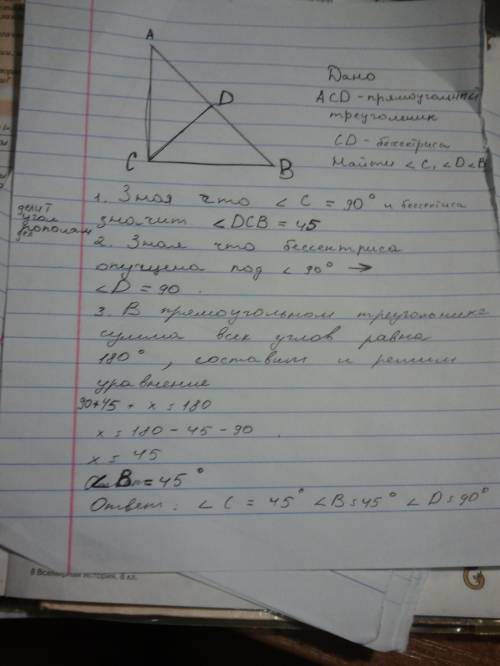 A
D
C
B
Дано
ACD - прямоугольный
треуголеник
CD - бессектриса
Найти <C, <D <B
1. Зная что <C = 90° и бессектиса
делит
угол
пополам
значит <DCB = 45
2. Зная что бессентриса
опущена под <90° →
<D = 90.
3. В прямоугольном треугольнике
сумма всех углов равна
180°, составим и решим
уравнение
90+45 + x = 180
x = 180 - 45 - 90
x = 45
<B = 45°
Ответ: <C = 45° <B = 45° <D = 90°
8 Всемирная история, 8 кл.